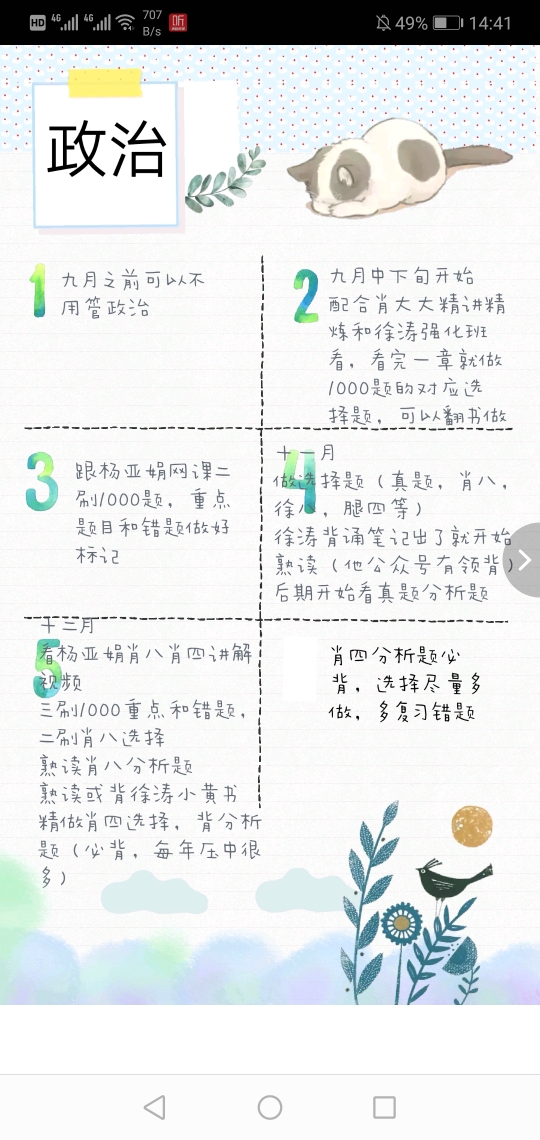 HD 4G 4G 707 B/s 49% 14:41
政治
1
九月之前可以不
用管政治
2
九月中下旬开始
配合肖大大精讲精
炼和徐涛强化班
看，看完一章就做
1000题的对应选
择题，可以翻书做
3
跟杨亚娟网课二
刷1000题，重点
题目和错题做好
标记
4
十一月
做选择题（真题，肖八，
徐八，腿四等）
徐涛背诵笔记出了就开始
熟读（他公众号有领背）
后期开始看真题分析题
5
十二月
看杨亚娟肖八肖四讲解
视频
三刷1000重点和错题，
二刷肖八选择
熟读肖八分析题
熟读或背徐涛小黄书
精做肖四选择，背分析
题（必背，每年压中很
多）
肖四分析题必
背，选择尽量多
做，多复习错题